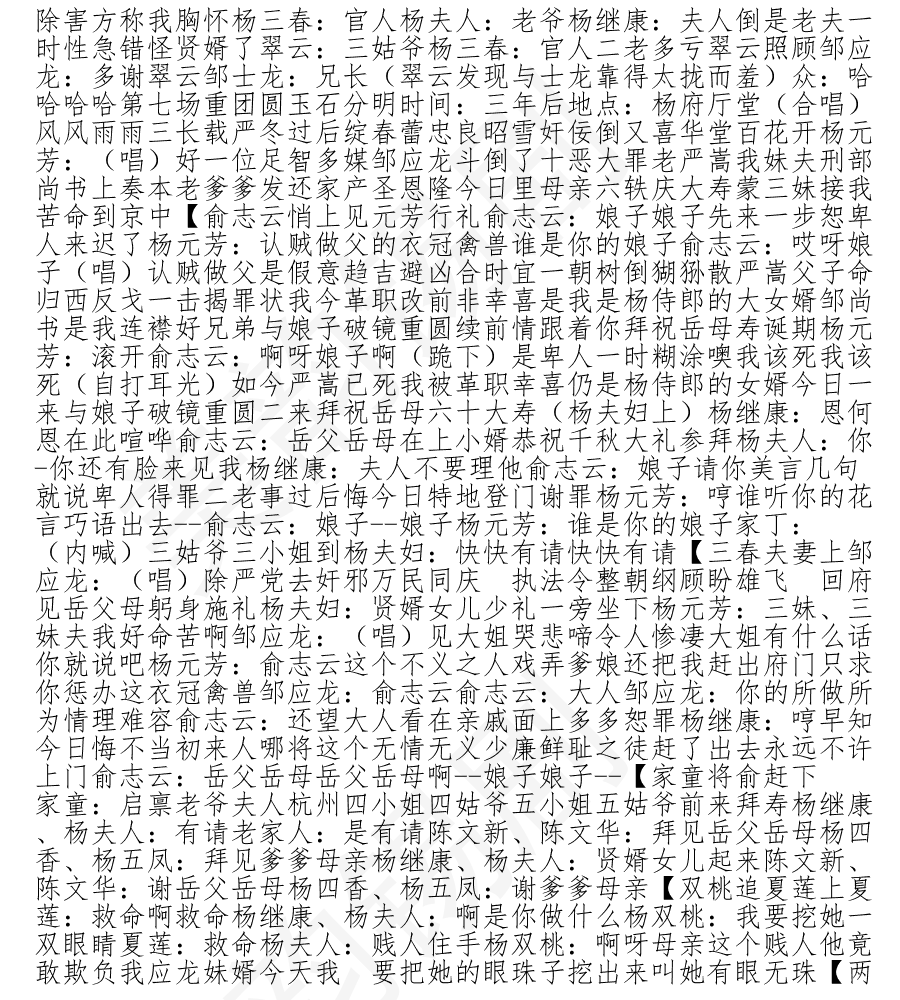 除害方称我胸怀杨三春：官人杨夫人：老爷杨继康：夫人倒是老夫一
时性急错怪贤婿了翠云：三姑爷杨三春：官人二老多亏翠云照顾邹应
龙：多谢翠云邹士龙：兄长（翠云发现与士龙靠得太拢而羞）众：哈
哈哈哈哈第七场重团圆玉石分明时间：三年后地点：杨府厅堂（合唱）
风风雨雨三长载严冬过后绽春蕾忠良昭雪奸佞倒又喜华堂百花开杨元
芳：（唱）好一位足智多媒邹应龙斗倒了十恶大罪老严嵩我妹夫刑部
尚书上奏本老爹爹发还家产圣恩隆今日里母亲六轶庆大寿蒙三妹接我
苦命到京中【俞志云悄上见元芳行礼俞志云：娘子娘子先来一步恕卑
人来迟了杨元芳：认贼做父的衣冠禽兽谁是你的娘子俞志云：哎呀娘
子（唱）认贼做父是假意趋吉避凶合时宜一朝树倒猢狲散严嵩父子命
归西反戈一击揭罪状我今革职改前非幸喜是我是杨侍郎的大女婿邹尚
书是我连襟好兄弟与娘子破镜重圆续前情跟着你拜祝岳母寿诞期杨元
芳：滚开俞志云：啊呀娘子啊（跪下）是卑人一时糊涂噢我该死我该
死（自打耳光）如今严嵩已死我被革职幸喜仍是杨侍郎的女婿今日一
来与娘子破镜重圆二来拜祝岳母六十大寿（杨夫妇上）杨继康：恩何
恩在此喧哗俞志云：岳父岳母在上小婿恭祝千秋大礼参拜杨夫人：你
-你还有脸来见我杨继康：夫人不要理他俞志云：娘子请你美言几句
就说卑人得罪二老事过后悔今日特地登门谢罪杨元芳：哼谁听你的花
言巧语出去--俞志云：娘子--娘子杨元芳：谁是你的娘子家丁：
（内喊）三姑爷三小姐到杨夫妇：快快有请快快有请【三春夫妻上邹
应龙：（唱）除严党去奸邪万民同庆　执法令整朝纲顾盼雄飞　回府
见岳父母躬身施礼杨夫妇：贤婿女儿少礼一旁坐下杨元芳：三妹、三
妹夫我好命苦啊邹应龙：（唱）见大姐哭悲啼令人惨凄大姐有什么话
你就说吧杨元芳：俞志云这个不义之人戏弄爹娘还把我赶出府门只求
你惩办这衣冠禽兽邹应龙：俞志云俞志云：大人邹应龙：你的所做所
为情理难容俞志云：还望大人看在亲戚面上多多恕罪杨继康：哼早知
今日悔不当初来人哪将这个无情无义少廉鲜耻之徒赶了出去永远不许
上门俞志云：岳父岳母岳父岳母啊--娘子娘子--【家童将俞赶下
家童：启禀老爷夫人杭州四小姐四姑爷五小姐五姑爷前来拜寿杨继康
、杨夫人：有请老家人：是有请陈文新、陈文华：拜见岳父岳母杨四
香、杨五凤：拜见爹爹母亲杨继康、杨夫人：贤婿女儿起来陈文新、
陈文华：谢岳父岳母杨四香、杨五凤：谢爹爹母亲【双桃追夏莲上夏
莲：救命啊救命杨继康、杨夫人：啊是你做什么杨双桃：我要挖她一
双眼睛夏莲：救命杨夫人：贱人住手杨双桃：啊呀母亲这个贱人他竟
敢欺负我应龙妹婿今天我　要把她的眼珠子挖出来叫她有眼无珠【两